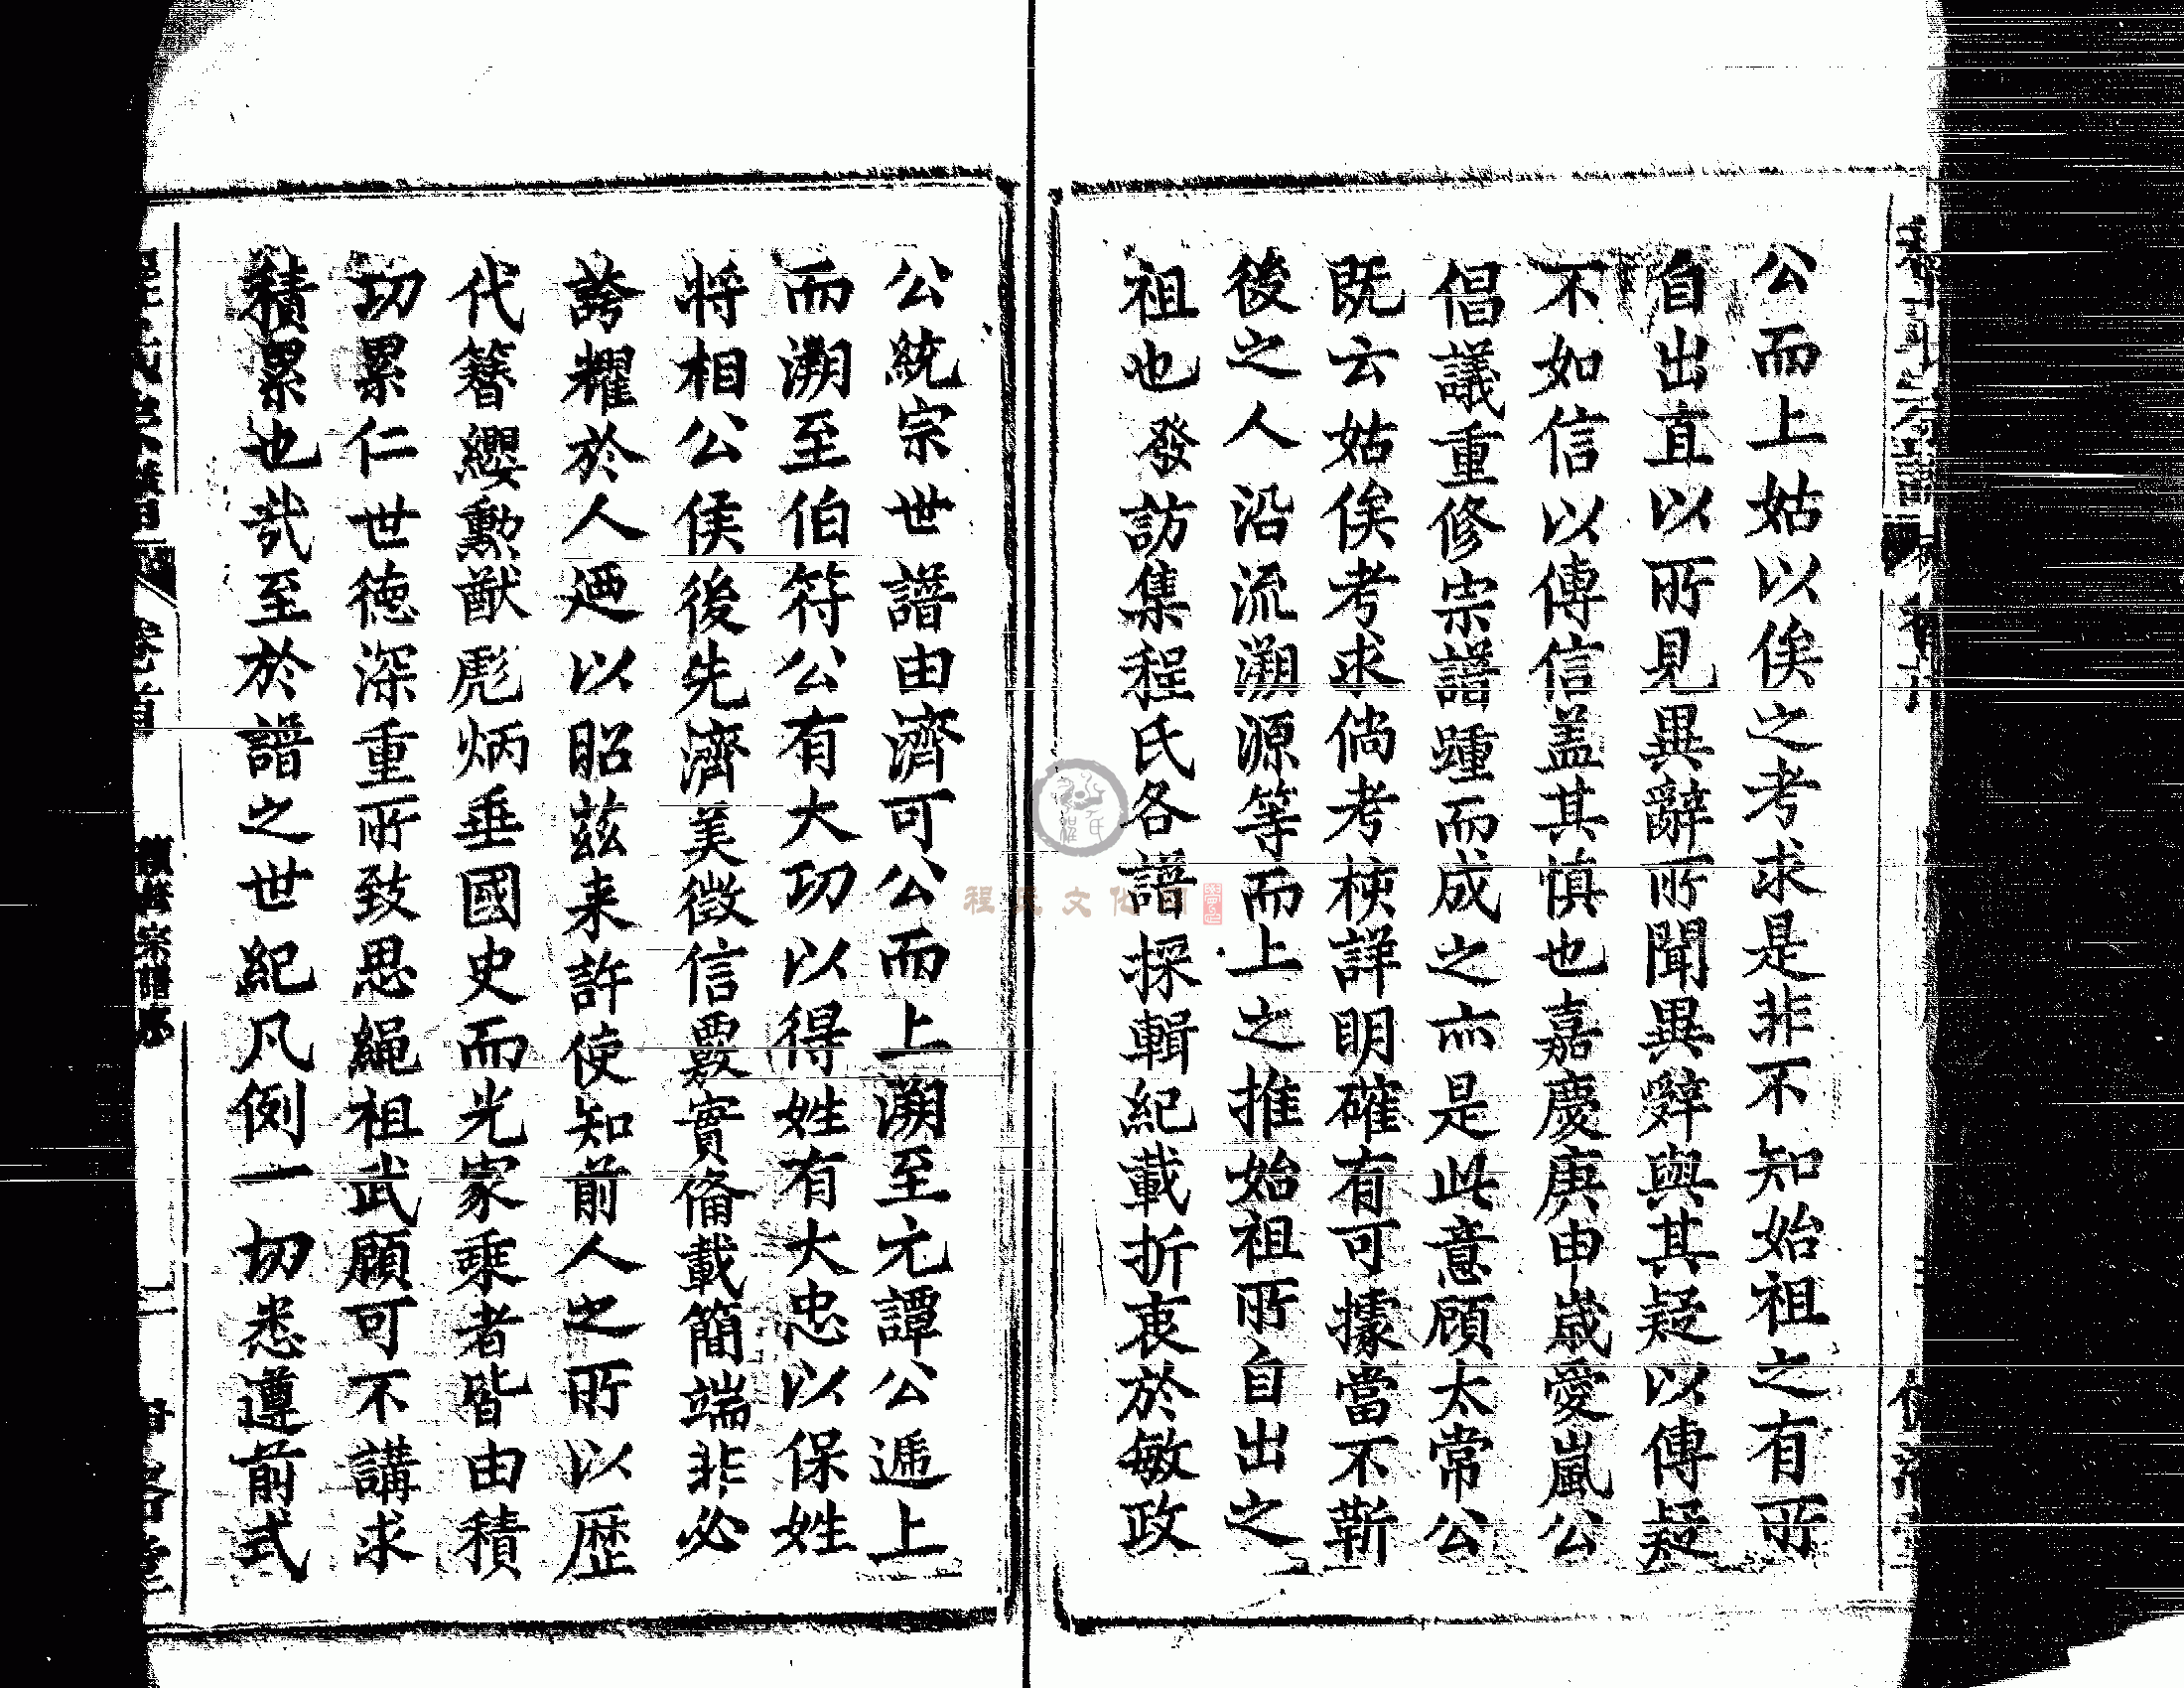 公而上姑以俟之考求是非不知始祖之有所
自出直以所見異辭所聞異辭與其疑以傳疑
不如信以傳信盖其慎也嘉慶庚申歲愛嵐公
倡議重修宗譜踵而成之亦是此意顧太常公
既云姑俟考求倘考核詳明確有可據當不靳
後之人沿流溯源等而上之推始祖所自出之
祖也發訪集程氏各譜採輯紀載折衷於敏政
公統宗世譜由濟可公而上溯至元譚公遞上
而溯至伯符公有大功以得姓有大忠以保姓
將相公侯後先濟美徵信覈實備載簡端非必
誇耀於人廼以昭兹来許使知前人之所以歴
代簪纓勳猷彪炳垂國史而光家乗者皆由積
功累仁世徳深重所致思繩祖武顧可不講求
積累也哉至於譜之世紀凡例一切悉遵前式
卷首
續修宗譜序
程氏文化网